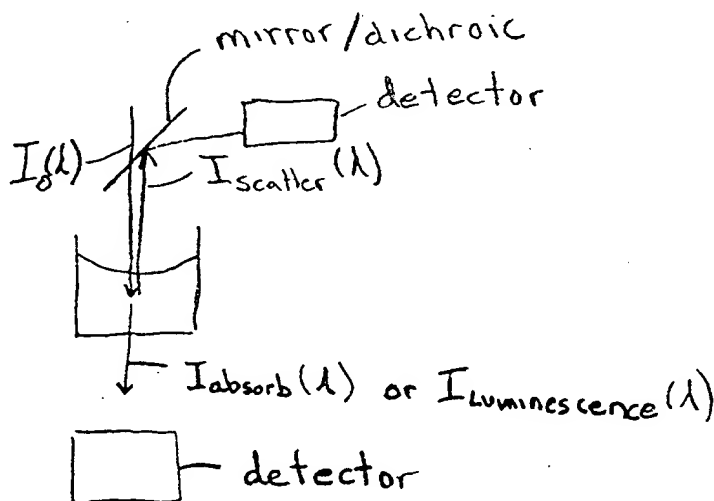 mirror/dichroic
detector
I₀(λ)
I scatter (λ)
I absorb (λ) or I Luminescence (λ)
detector